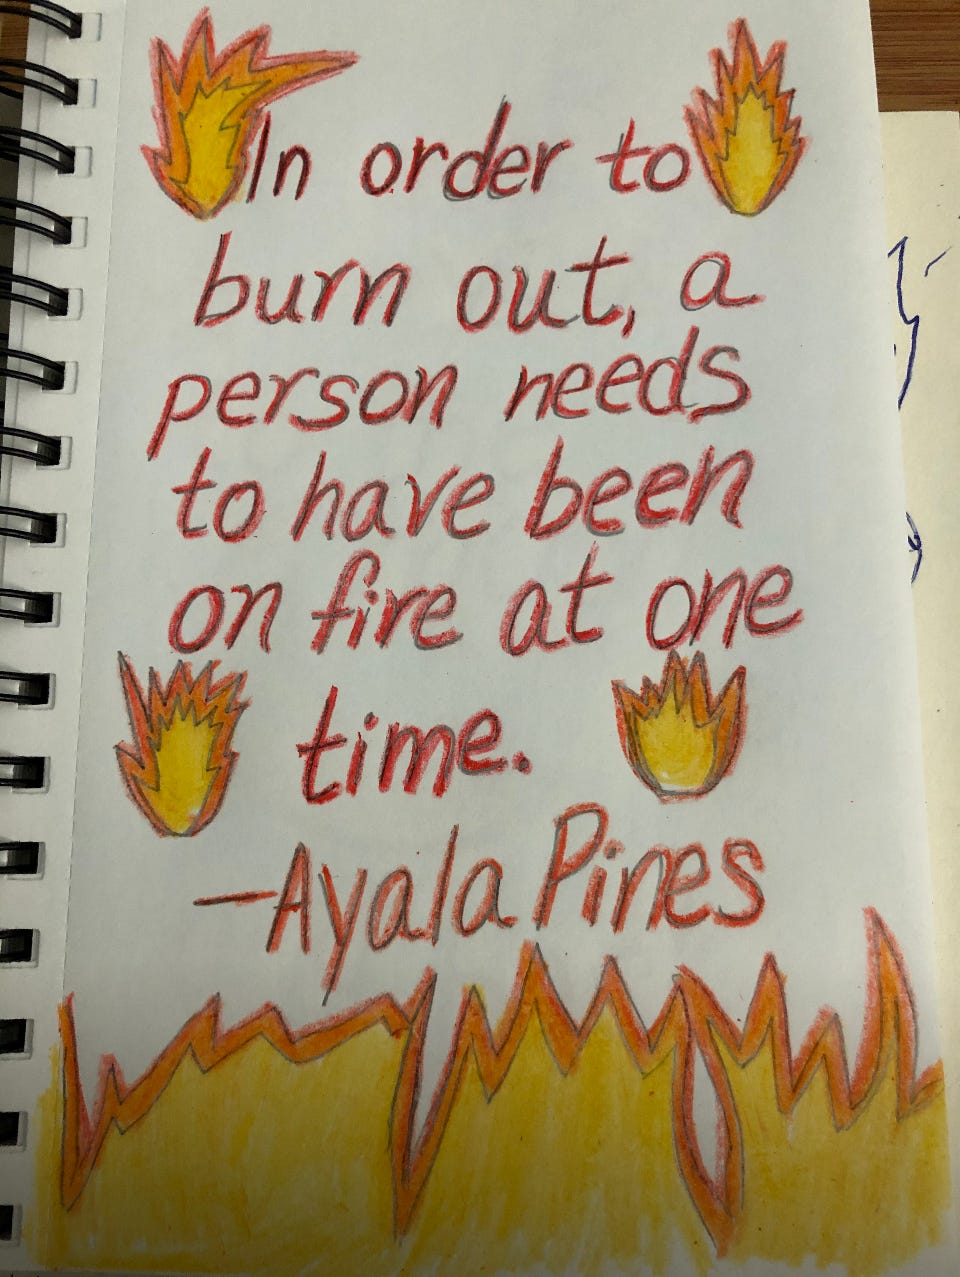 In order to
burn out, a
person needs
to have been
on fire at one
time.
—Ayala Pines